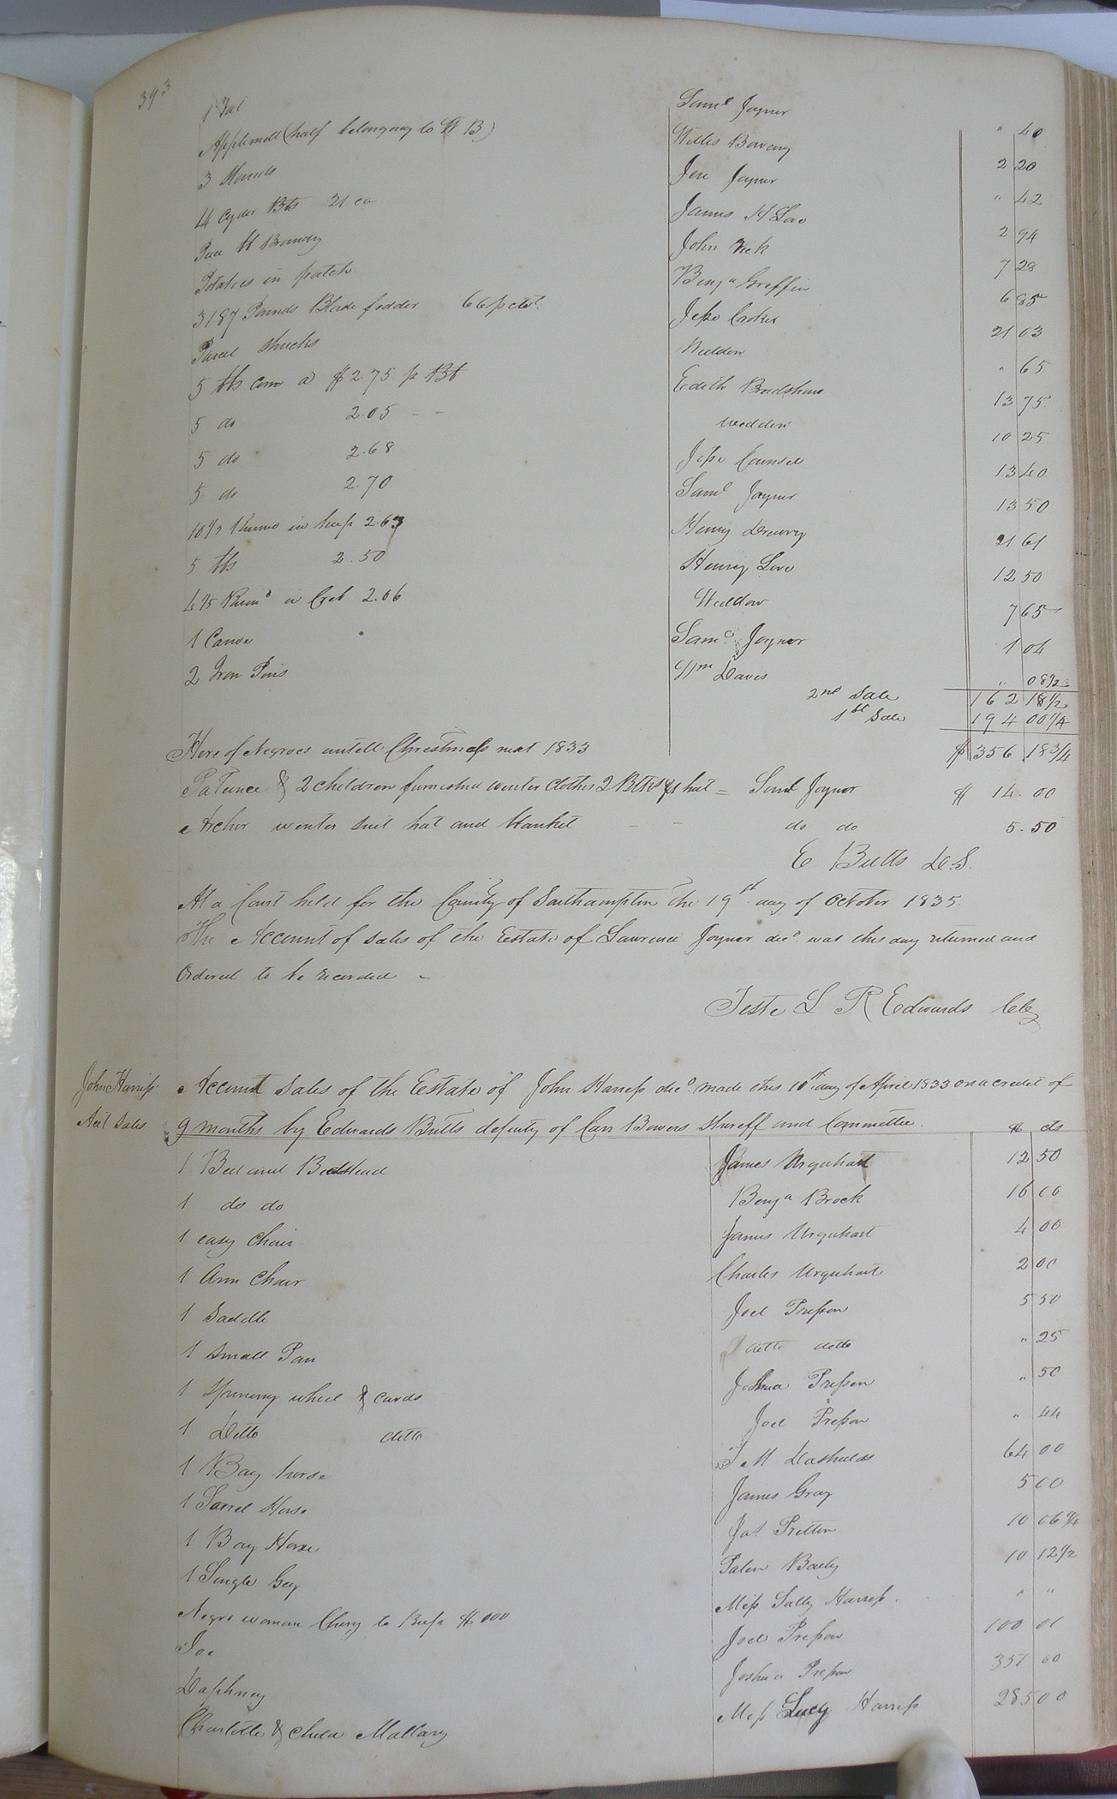 393
1 Fat Saml Joyner " 40
Applemill (half belonging to H B) Willis Bowery 2 20
3 Jese Joyner " 42
14 Cyder Bls 21 ca James H Love 2 94
Brandy John Vick 7 28
Potatoes in patch Benja Griffin 6 85
3187 Pounds Blade fodder 66 p ct Jesse Crocker 21 03
Parcel Shucks Widdow " 65
5 bls corn a $2.75 p Bl Edith Bradshaw 13 75
5 do 2.05 - - widdow 10 25
5 do 2.68 Jesse Council 13 40
5 do 2.70 Saml Joyner 13 50
in heap 2.63 Henry Drewry 21 61
5 bls 2.50 Henry Love 12 50
in Crib 2.06 Widdow 7 65
1 Canoe Saml Joyner 1 04
2 Iron Pins Wm Daves " 08 1/2
2nd Sale 162 18 1/2
1st Sale 194 00 1/4
Hire of Negroes untill Christmass next 1833 $ 356 18 3/4
Patience & 2 children furnished winter clothes 2 Blkts & 1 hat = Saml Joyner $ 14.00
Archer winter suit hat and blanket - - do do 5.50
E Butts D.S.
At a Court held for the County of Southampton the 19th day of October 1835
The Account of Sales of the Estate of Lawrence Joyner decd was this day returned and
Ordered to be recorded -
Teste L R Edwards Clk
John Harriss Account Sales of the Estate of John Harriss decd made this 10th day of April 1833 on a credit of
Act Sales 9 months by Edwards Butts deputy of Carr Bowers Sheriff and Committee $ cts
1 Bed and Bedstead James Urquhart 12 50
1 do do Benja Brock 16 00
1 easy Chair James Urquhart 4 00
1 Arm Chair Charles Urquhart 2 00
1 Saddle Joel Presson 5 50
1 Small Pan ditto ditto " 25
1 Spinning wheel & cards Joshua Presson " 50
1 Ditto ditto Joel Presson " 44
1 Bay horse 64 00
1 Sorrel Horse James Gray 5 00
1 Bay Horse Jas 10 06 1/4
1 Single Gig 10 12 1/2
Negro woman to Miss Sally Harriss. " "
Joe Joel Presson 100 00
Daphney Joshua Presson 351 00
Charlotte & Child Mallary Miss Lucy Harriss 285 00